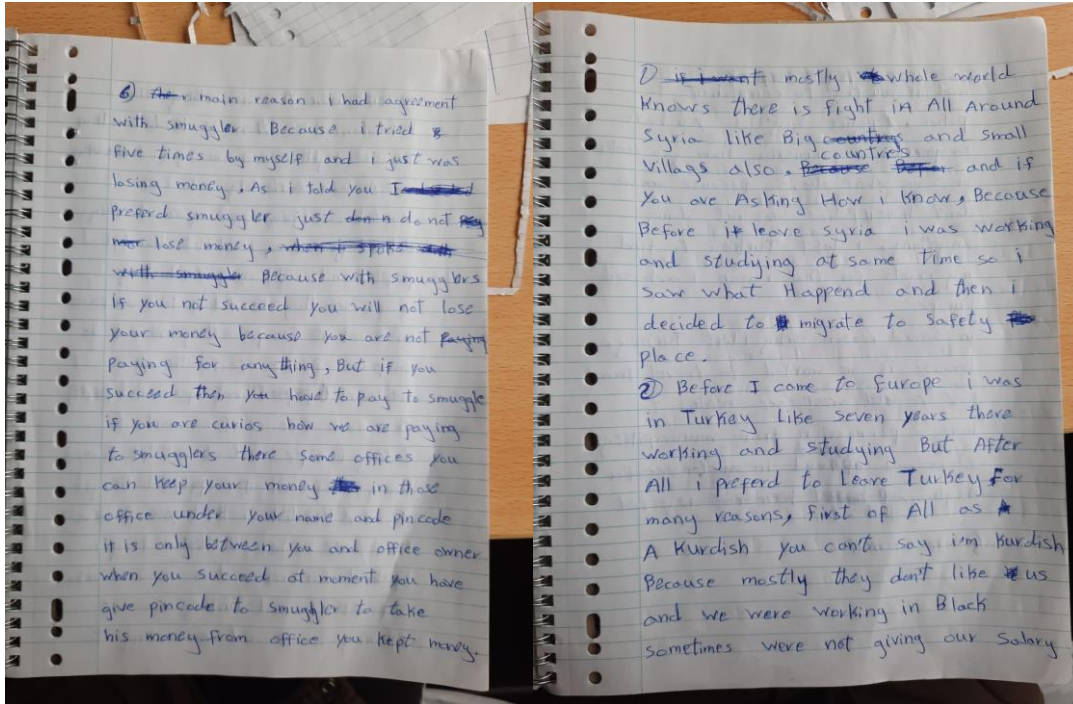 6) main reason i had agreement
with smuggler. Because i tried
five times by myself and i just was
losing money. As i told you I
preferd smuggler just do not
lose money,
Because with smugglers
if you not succeed you will not lose
your money because you are not
Paying for any thing, But if you
succeed then you have to pay to smuggle
if you are curios how we are paying
to smugglers there some offices you
can keep your money in those
office under your name and pincode
it is only between you and office owner
when you succeed at moment you have
give pincode to smuggler to take
his money from office you kept money.
1) mostly whole world
Knows there is fight in All Around
Syria like Big countries and small
Villags also, and if
You are Asking How i know, Because
Before i leave syria i was working
and studijing at same time so i
saw what Happend and then i
decided to migrate to safety
place.
2) Before I come to Europe i was
in Turkey Like seven years there
working and studying But After
All i preferd to Leave Turkey For
many reasons, first of All as
A Kurdish you can't say i'm kurdish
Because mostly they don't like us
and we were working in Black
sometimes were not giving our salary